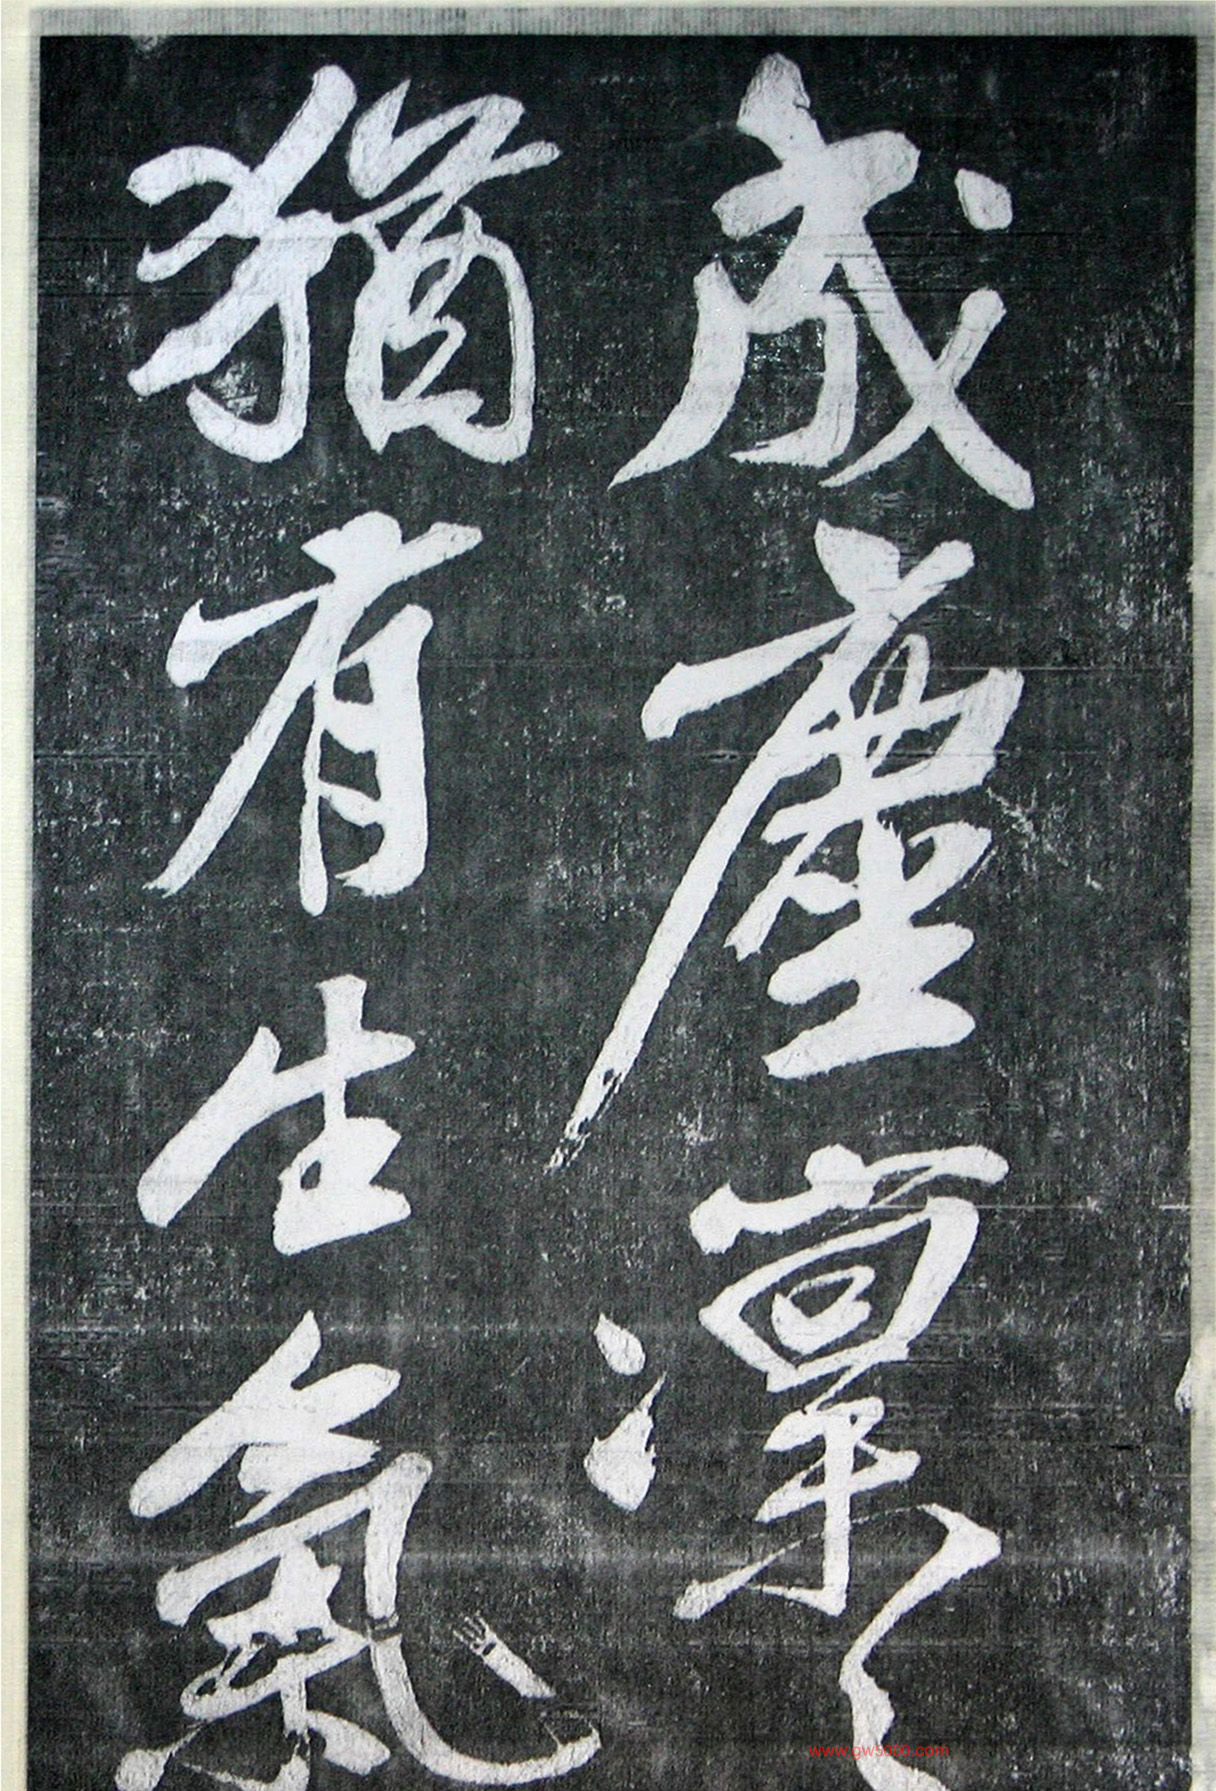 成塵凜〻
猶有生氣
www.gw5060.com